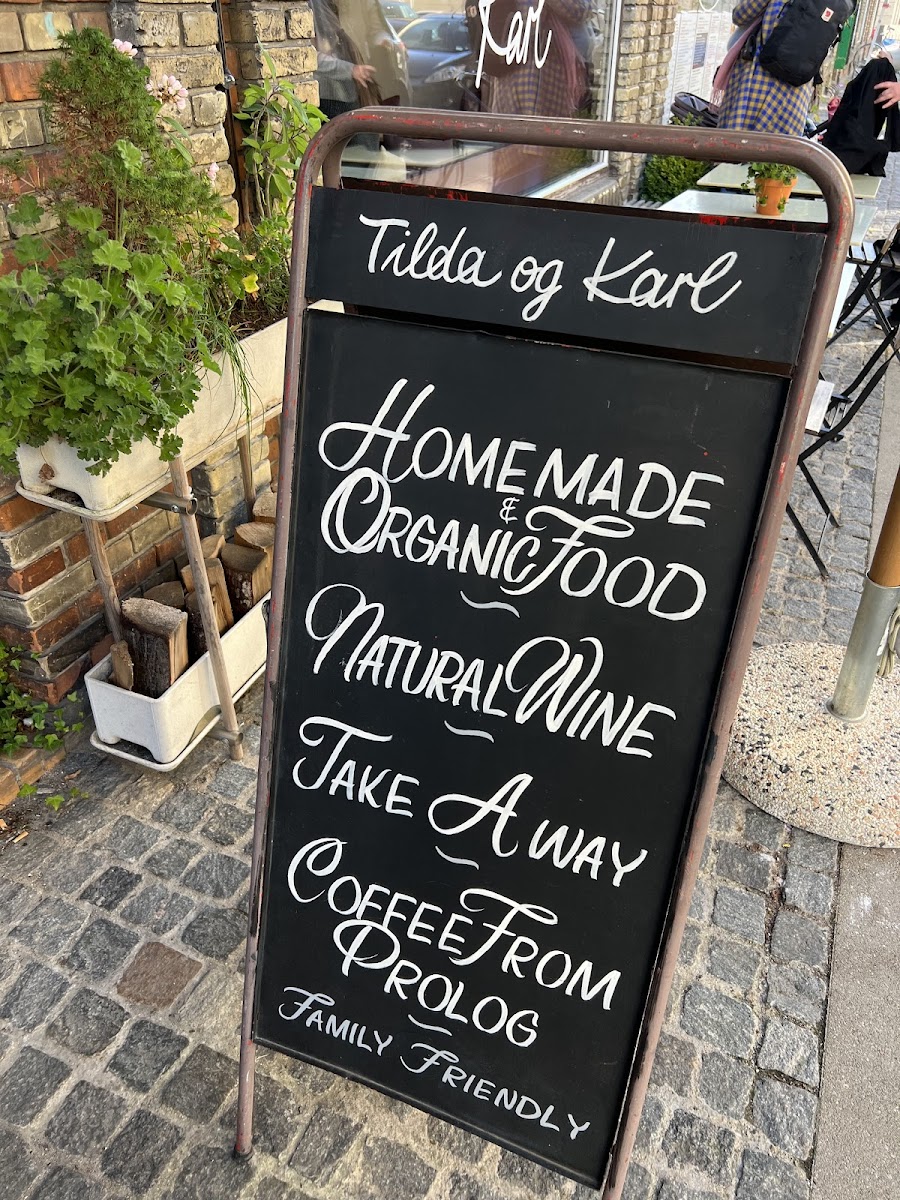 Karl
Tilda og Karl
HOMEMADE
&
ORGANIC FOOD
NATURAL WINE
TAKE AWAY
COFFEE FROM
PROLOG
FAMILY FRIENDLY